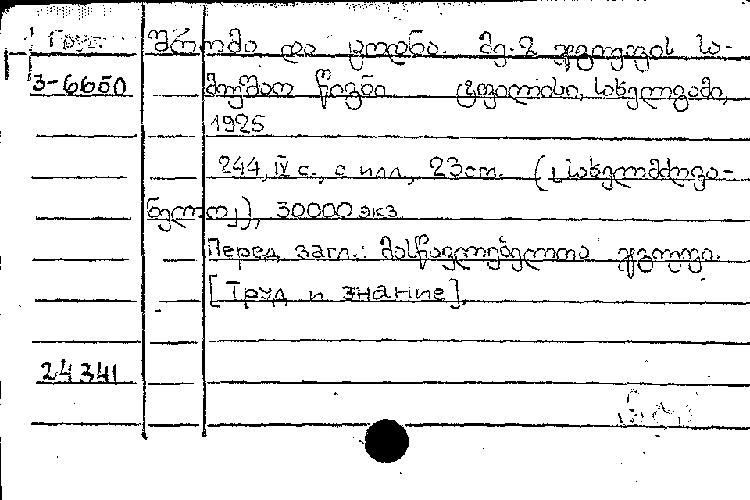 Груз.
შრომა და ცოდნა. მე-2 ჯგუფის სა-
3-6650 მუშაო წიგნი ტფილისი, სახელგამი,
1925
244, IV с., с илл., 23 cm. (სახელმძღვა-
ნელო), 30000 экз
Перед загл.: მასწავლებელთა ჯგუფი.
[Труд и знание].
24341